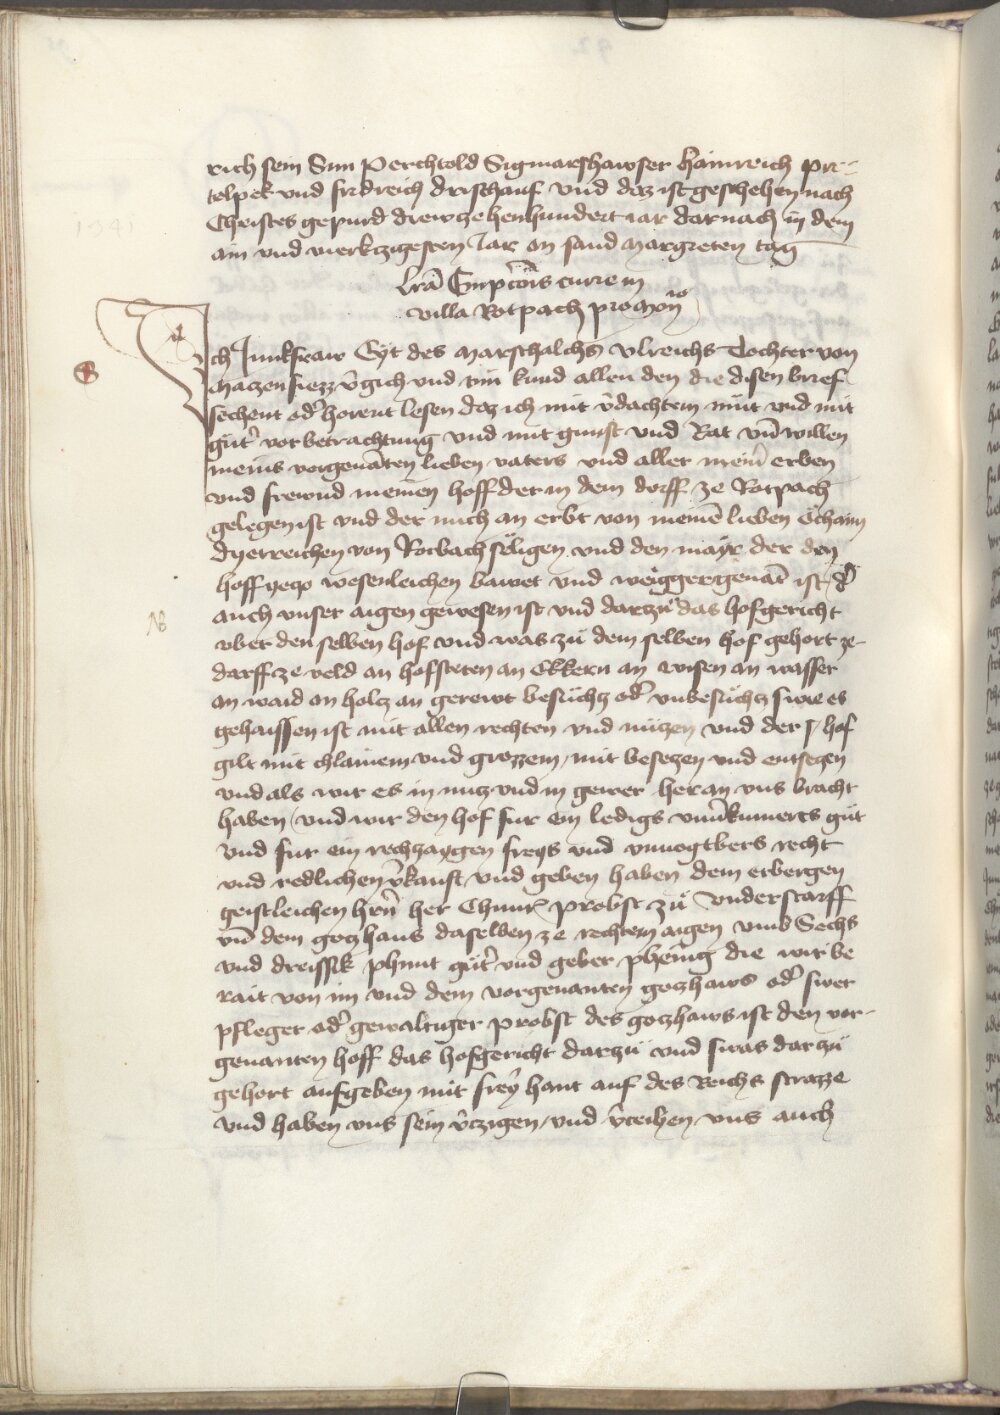 rich sein Sun Perchtold Sigmarshawser Hainreich pir-
telpek vnd fridreich drischauf vnd daz ist geschehen nach
Christes gepurd drewzehenhundert iar darnach in dem
ain vnd vierkzigesten Jar an sand Margreten tag
1341
Lrã Empcõis curie in
villa Rotpach pro Monrio
Ich Junkfraw Gyt des Marschalchs Vlreichs Tochter von
Mazensiezz v̂gich vnd tun kund allen den die disen brief
sechent od̂ horent lesen daz ich mit v̂dachtem mút vnd mit
gút̂ vorbetrachtung vnd mit gunst vnd Rat vn̄ willen
meins vorgenãten lieben vaters vnd aller mein̂ erben
vnd frewnd meinen hoff der in dem dorff ze Rotpach
gelegen ist vnd der mich an erbt von meinẽ lieben Ochaim
dyetreichen von Rotbach sẽligen vnd den mayr der den
hoff yezo wesenleichen bawet vnd weigger genãt ist d̂
auch vnser aigen gewesen ist vnd darzů das hofgericht
NB
vber den selben hof vnd was zů dem selben hof gehort ze
darff ze veld an hofsteten an Ekkern an wisen an wasser
an waid an holz an gerewt besůchtz od̂ vnbesůchtz swie es
gehaissen ist mit allen rechten vnd nůtzen vnd der s hof
gilt mit chlainem vnd grozzem mit besetzen vnd entsetzen
vnd als wir es in nutz vnd in gewer her an vns bracht
haben vnd wir den hof fur ein ledigs vnv̂kumerts gůt
vnd fur ein rechz aygen freys vnd vnuogtbers recht
vnd redlichen v̂kauft vnd geben haben dem erbergen
geistleichen hrn̂ her Chunr probst zů Vnderstorff
vn̄ dem gotzhaus daselben ze rechtem aigen vmb Sechs
vnd dreissik phunt gůt̂ vnd geber phening die wir be
rait von im vnd dem vorgenanten gotzhaws od̂ swer
pfleger od̂ gewaltiger probst des gotzhaws ist den vor-
genanten hoff das hofgericht darzů vnd swas darzů
gehort aufgeben mit frey̆ hant auf des Reichs strazze
vnd haben vns sein v̂zigen vnd v̂zeihen vns auch